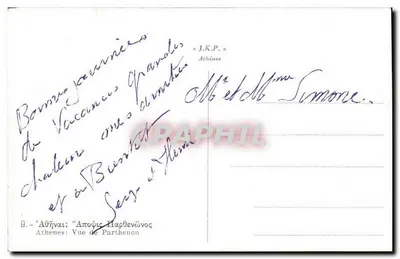 « J.K.P. »
Athènes
Bonnes journées
de Vacances grandes
chaleur mes amitiés
et à Bientôt
Serge et
Mr et Mme Simone.
CPAPHIL
9. - Ἀθῆναι: Ἄποψις Παρθενῶνος
Athenes: Vue de Parthenon